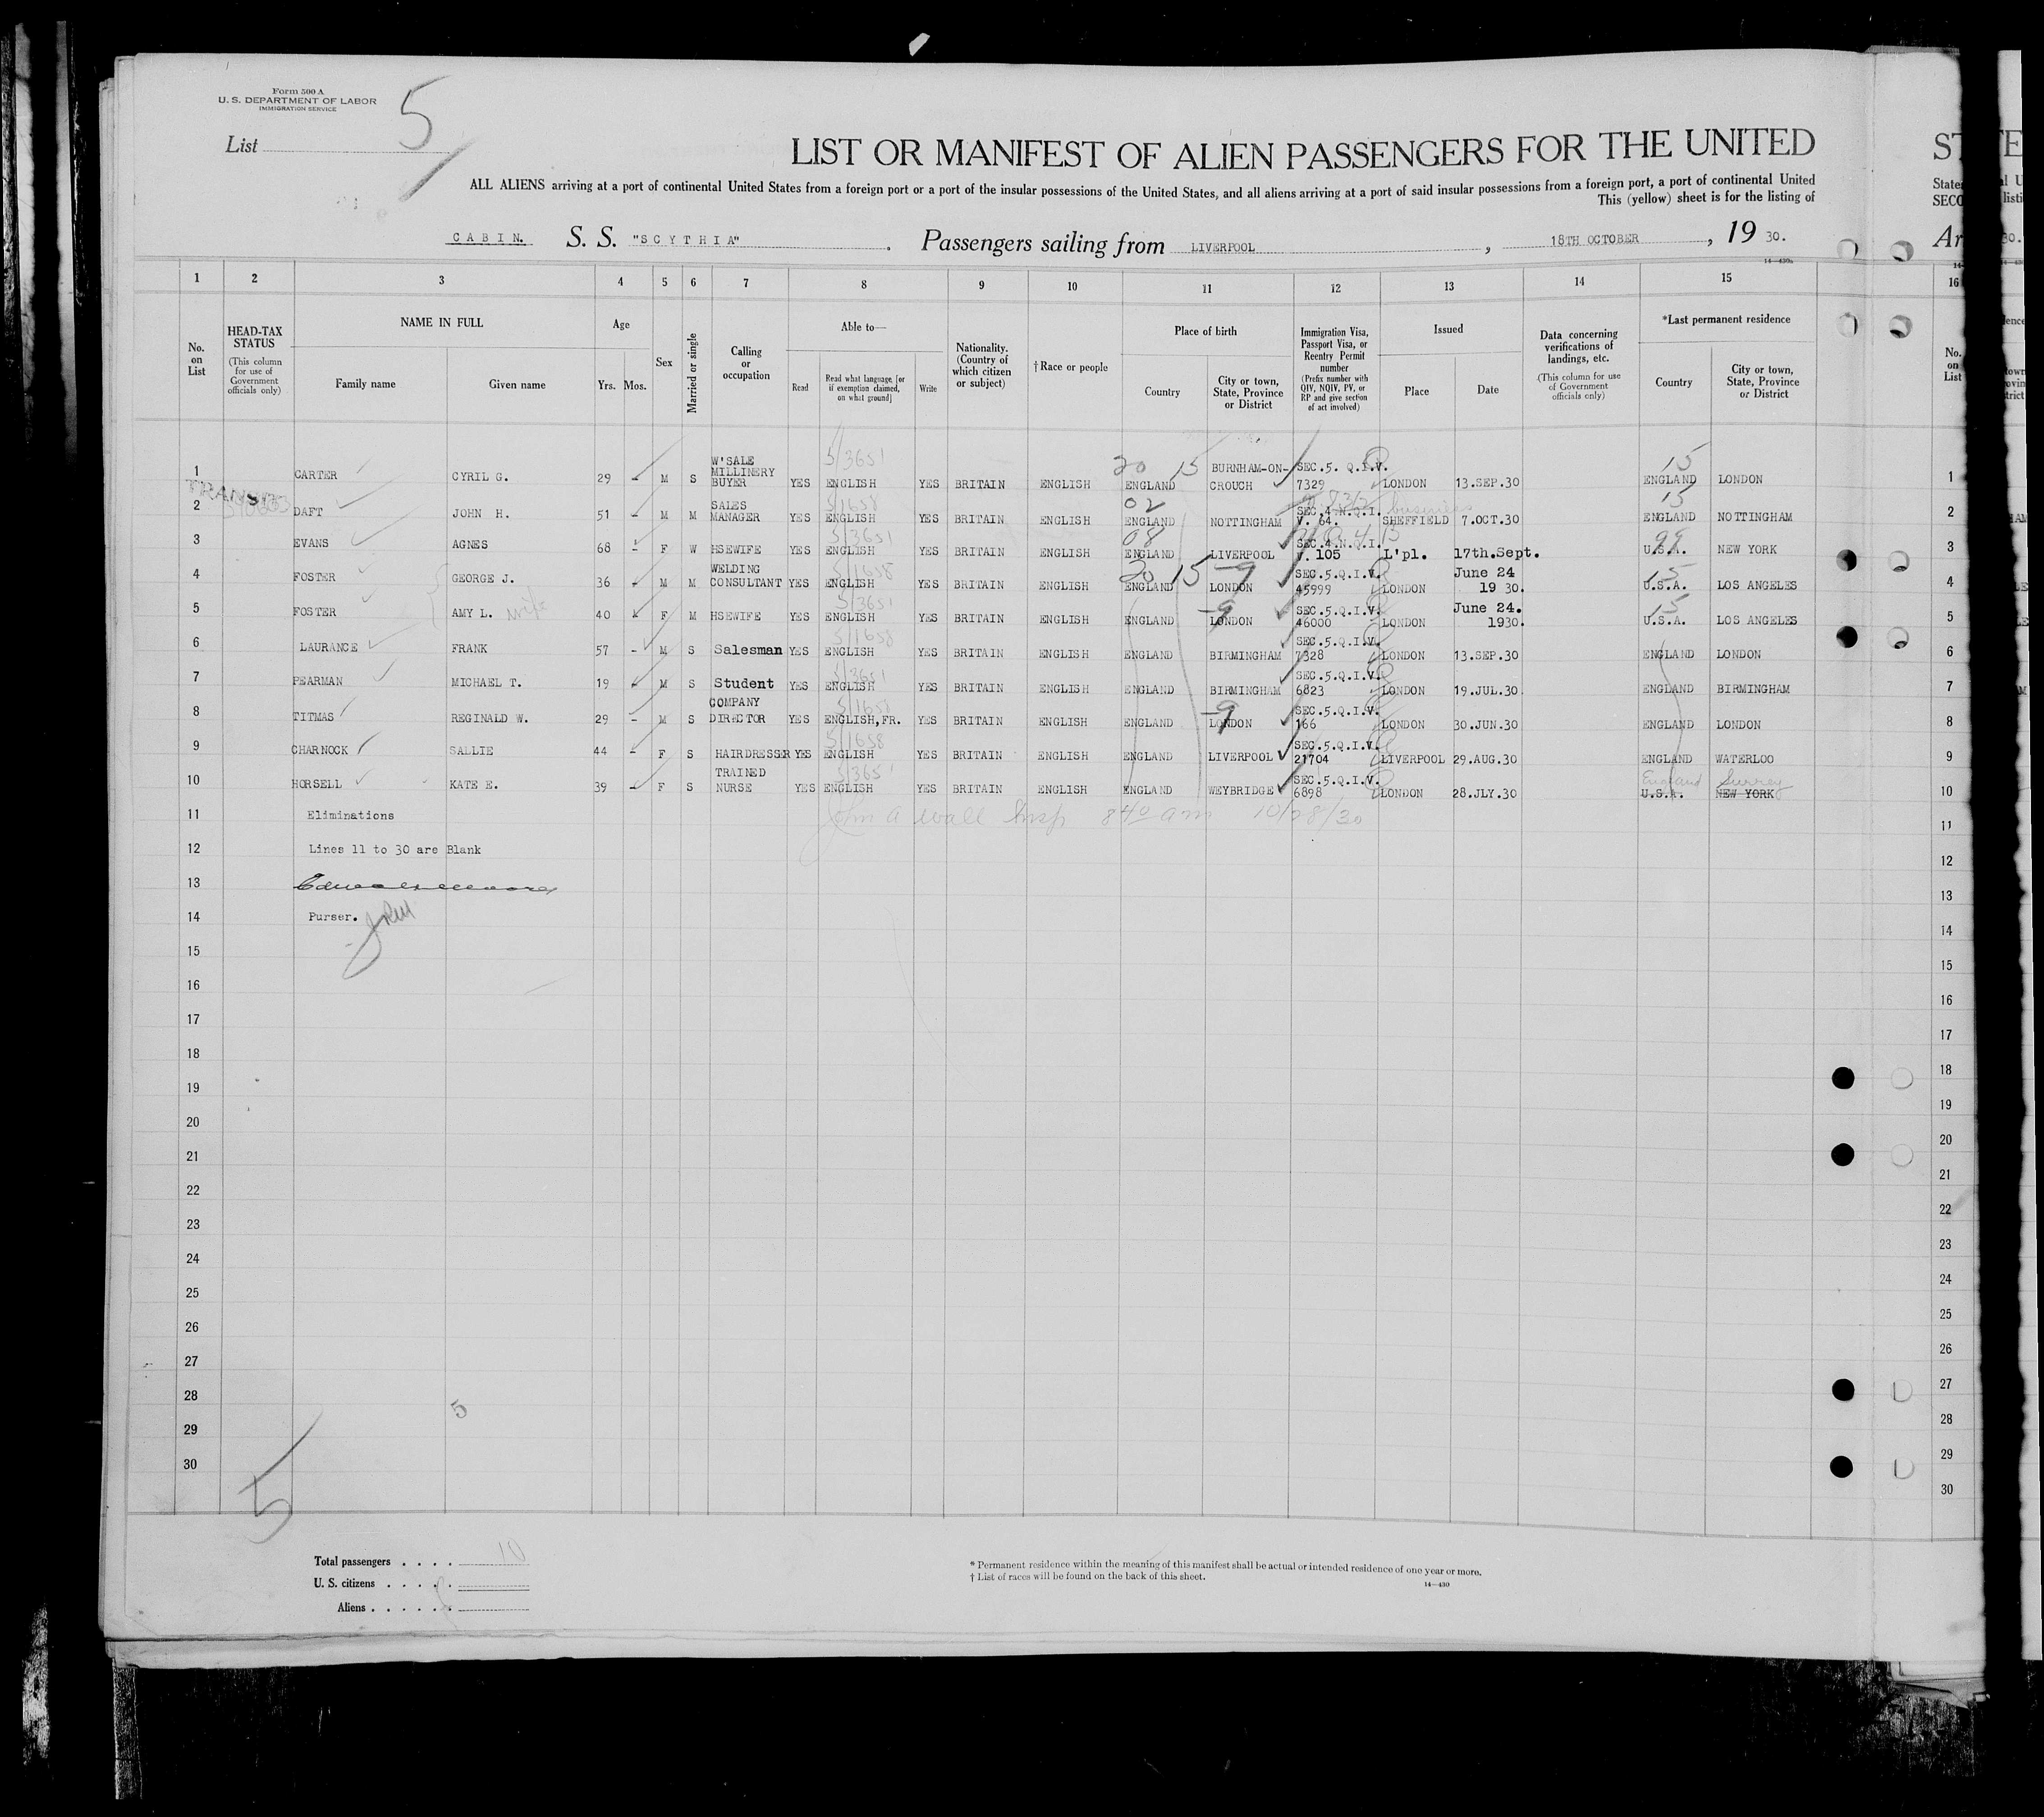 Form 500 A
U. S. DEPARTMENT OF LABOR
IMMIGRATION SERVICE
List 5
LIST OR MANIFEST OF ALIEN PASSENGERS FOR THE UNITED
ALL ALIENS arriving at a port of continental United States from a foreign port or a port of the insular possessions of the United States, and all aliens arriving at a port of said insular possessions from a foreign port, a port of continental United
This (yellow) sheet is for the listing of
CABIN. S. S. "SCYTHIA". Passengers sailing from LIVERPOOL, 18TH OCTOBER, 19 30.
14—430b
1 2 3 4 5 6 7 8 9 10 11 12 13 14 15 16
No. on List
HEAD-TAX STATUS (This column for use of Government officials only)
NAME IN FULL
Family name Given name
Age
Yrs. Mos.
Sex
Married or single
Calling or occupation
Able to—
Read Read what language [or if exemption claimed, on what ground] Write
Nationality. (Country of which citizen or subject)
† Race or people
Place of birth
Country City or town, State, Province or District
Immigration Visa, Passport Visa, or Reentry Permit number (Prefix number with QIV, NQIV, PV, or RP and give section of act involved)
Issued
Place Date
Data concerning verifications of landings, etc. (This column for use of Government officials only)
*Last permanent residence
Country City or town, State, Province or District
No. on List
1 CARTER CYRIL G. 29 M S W'SALE MILLINERY BUYER YES ENGLISH YES BRITAIN ENGLISH ENGLAND BURNHAM-ON-CROUCH SEC.5. Q.I.V. 7329 LONDON 13.SEP.30 ENGLAND LONDON 1
2 DAFT JOHN H. 51 - M M SALES MANAGER YES ENGLISH YES BRITAIN ENGLISH ENGLAND NOTTINGHAM SEC.4 N.Q.I. V. 64. SHEFFIELD 7.OCT.30 ENGLAND NOTTINGHAM 2
3 EVANS AGNES 68 - F W HSEWIFE YES ENGLISH YES BRITAIN ENGLISH ENGLAND LIVERPOOL SEC.4 N.Q.I. V. 105 L'pl. 17th.Sept. U.S.A. NEW YORK 3
4 FOSTER GEORGE J. 36 - M M WELDING CONSULTANT YES ENGLISH YES BRITAIN ENGLISH ENGLAND LONDON SEC.5.Q.I.V. 45999 LONDON June 24 19 30. U.S.A. LOS ANGELES 4
5 FOSTER AMY L. wife 40 - F M HSEWIFE YES ENGLISH YES BRITAIN ENGLISH ENGLAND LONDON SEC.5.Q.I.V. 46000 LONDON June 24. 1930. U.S.A. LOS ANGELES 5
6 LAURANCE FRANK 57 - M S Salesman YES ENGLISH YES BRITAIN ENGLISH ENGLAND BIRMINGHAM SEC.5.Q.I.V. 7328 LONDON 13.SEP.30 ENGLAND LONDON 6
7 PEARMAN MICHAEL T. 19 - M S Student YES ENGLISH YES BRITAIN ENGLISH ENGLAND BIRMINGHAM SEC.5.Q.I.V. 6823 LONDON 19.JUL.30 ENGLAND BIRMINGHAM 7
8 TITMAS REGINALD W. 29 - M S COMPANY DIRECTOR YES ENGLISH,FR. YES BRITAIN ENGLISH ENGLAND LONDON SEC.5.Q.I.V. 166 LONDON 30.JUN.30 ENGLAND LONDON 8
9 CHARNOCK SALLIE 44 - F S HAIRDRESSER YES ENGLISH YES BRITAIN ENGLISH ENGLAND LIVERPOOL SEC.5.Q.I.V. 21704 LIVERPOOL 29.AUG.30 ENGLAND WATERLOO 9
10 HORSELL KATE E. 39 - F S TRAINED NURSE YES ENGLISH YES BRITAIN ENGLISH ENGLAND WEYBRIDGE SEC.5.Q.I.V. 6898 LONDON 28.JLY.30 U.S.A. England NEW YORK Surrey 10
11 Eliminations John A Wall Insp 840 am 10/28/30 11
12 Lines 11 to 30 are Blank 12
13 13
14 Purser. 14
15 15
16 16
17 17
18 18
19 19
20 20
21 21
22 22
23 23
24 24
25 25
26 26
27 27
28 5 28
29 29
30 30
5
Total passengers . . . . 10
U. S. citizens . . . . .
Aliens . . . . . .
* Permanent residence within the meaning of this manifest shall be actual or intended residence of one year or more.
† List of races will be found on the back of this sheet.
14—430